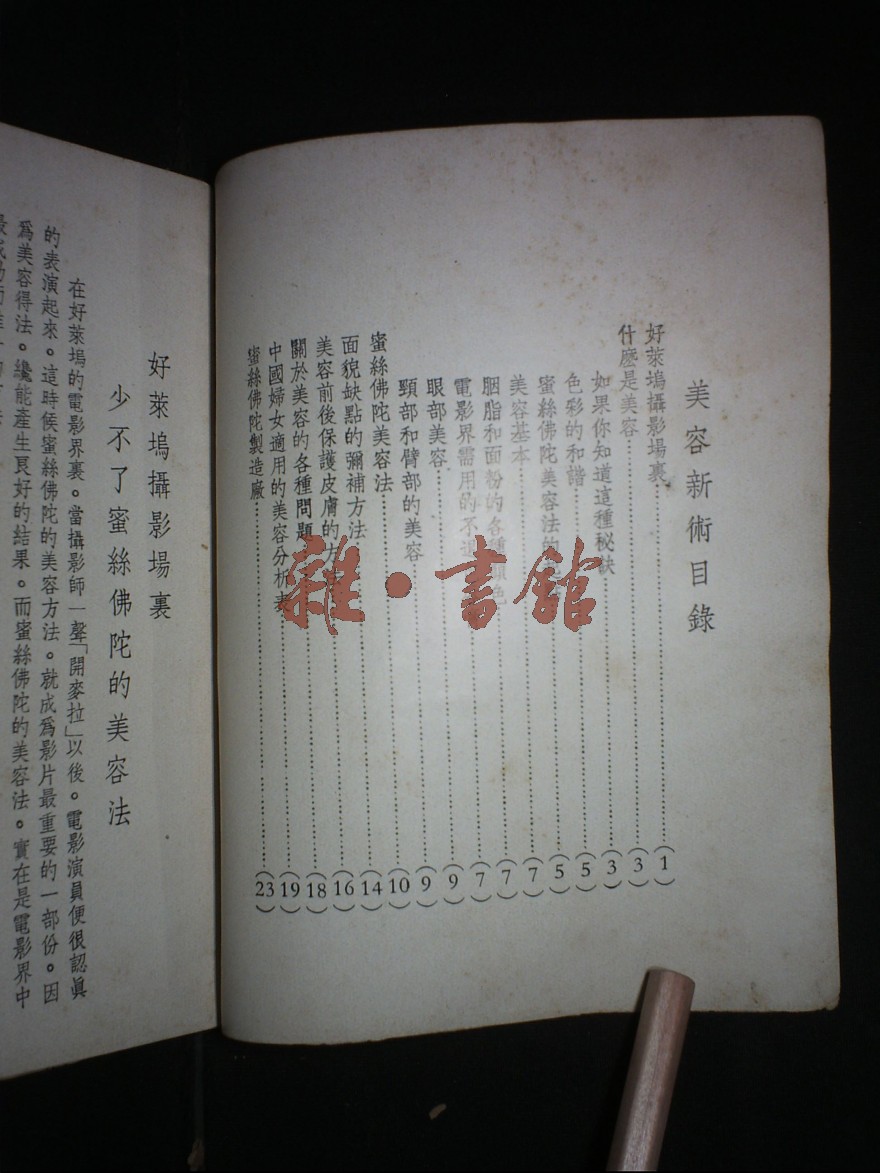 美容新術目錄
好萊塢攝影場裏……(1)
什麽是美容……(3)
如果你知道這種秘訣……(3)
色彩的和諧……(5)
蜜絲佛陀美容法的……(5)
美容基本……(7)
胭脂和面粉的各種顏色……(7)
電影界需用的不……(7)
眼部美容……(9)
頸部和臂部的美容……(9)
蜜絲佛陀美容法……(10)
面貌缺點的彌補方法……(14)
美容前後保護皮膚的方……(16)
關於美容的各種問題……(18)
中國婦女適用的美容分析表……(19)
蜜絲佛陀製造廠……(23)
雜·書館
好萊塢攝影場裏
少不了蜜絲佛陀的美容法
在好萊塢的電影界裏。當攝影師一聲「開麥拉」以後。電影演員便很認眞
的表演起來。這時候蜜絲佛陀的美容方法。就成爲影片最重要的一部份。因
爲美容得法。纔能產生良好的結果。而蜜絲佛陀的美容法。實在是電影界中